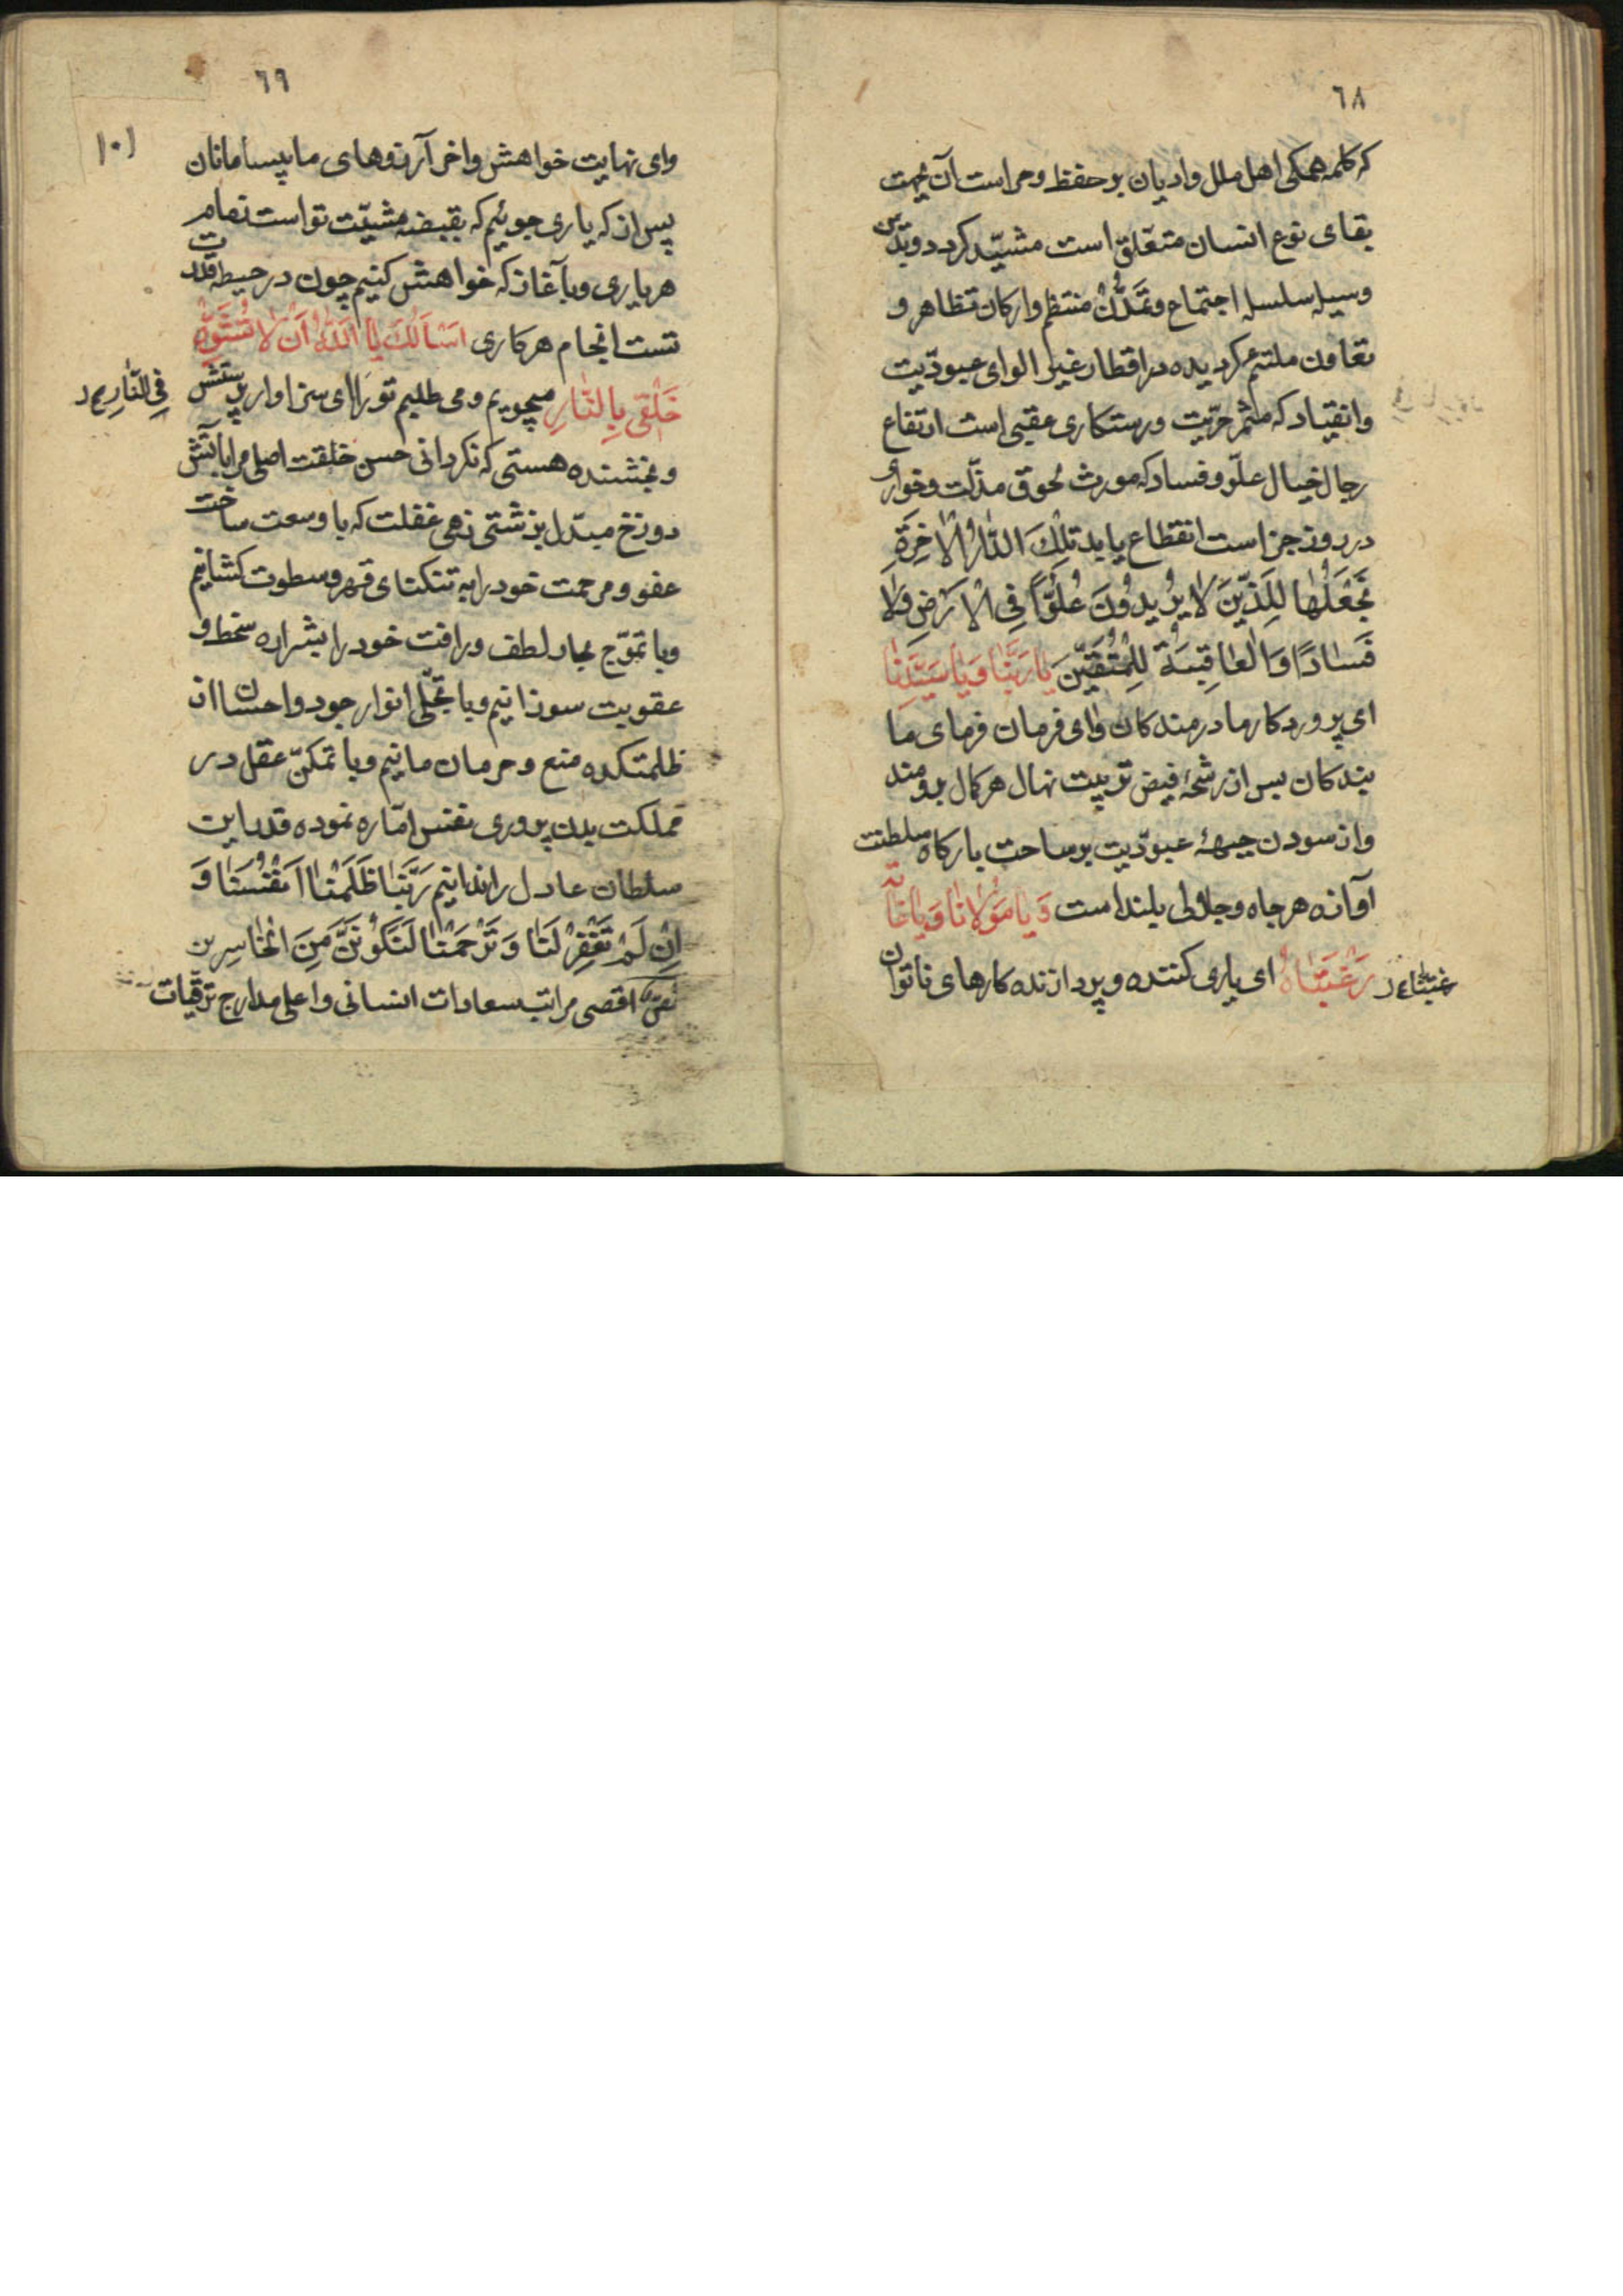 ٦٨
که کلمه همکی اهل ملل وادیان بر حفظ وحراست آن بجهت
بقای نوع انسان متعلّق است مشیّد کردد وبدین
وسیله سلسله اجتماع وتمَدُّنْ منتظم وارکان تظاهر و
تعاون ملتئم کردیده در اقطار غیر الوای عبودّیت
وانقیاد که مثمر حرّیت ورستکاری عقبی است ارتفاع
رجال خیال علّو وفساد که مورث لحوق مذلّت وخواری
در روز جزا است انقطاع یابد تلْكَ الدّٰارُ الْاٰخِرَةِ
نَجْعَلُهٰا لِلَذّینَ لاٰ یرُیدوُنَ عُلُوّاً فِی الْاَرَضِ وَلاٰ
فَسٰادًا وَالْعٰاقِبَةُ لِلْمُتَّقیّنَ یٰا رَبَّنٰا وَیٰا سَیَّدَنٰا
ای پروردکار ما درمندکان وٰای فرمان فرمای ما
بندکان بس از رشحهٔ فیض تربیت نهال هر کمال برومند
واز سودن جبههٔ عبودّیت بر ساحت بارکاه سلطنت
آوازه هر جاه وجلالی بلند است وَ یٰا مَوْلاٰنٰا وَیٰا غٰایَة
رَغْبَتَنٰاهُ ای یاری کننده وپردازنده کارهای ناتوان
رغبتنا خ د
٦٩
١٠١
وای نهایت خواهش واخر آرزوهای ما بیسامانان
پس از که یاری جوئیم که بقبضه مشیّت تو است تمام
هر یاری وبا آغاز که خواهش کنیم چون در حیطه قدرت
تست انجام هر کاری اَسْاَلُكَ یٰا اَللّٰهُ اَنْ لاٰ تُشَوِّهْ
خَلْقی بِالنّٰارِ میجویم ومی طلبم تو را ای سزاوار پرستش
فِی النّٰارِ خ د
وبخشنده هستی که نکردانی حسن خلقت اصلی مرا باٰتش
دوزخ مبتدل بزشتی زهی غفلت که با وسعت ساحت
عفو ومرحمت خود را به تنکنای قهر وسطوت کشانیم
وبا تموّج بحار لطف ورافت خود را بشراره سخط و
عقوبت سوزانیم وبا تجلّی انوار جود واحسان از
ظلمتکده منع وحرمان مانیم وبا تمکنّ عقل در
مملکت بدن پروری نفس امّاره نموده قدر این
سلطان عادل را ندانیم رَبَّنٰا ظَلَمْنٰا اَنْفُسَنٰا وَ
اِنْ لَمْ تَغْفِرْ لَنٰا وَ تَرْحَمْنٰا لَنَکوُنَنَّ مِنَ الْخٰاسِرین
نصّ اقصی مراتب سعادات انسانی واعلی مدارج ترقّیات